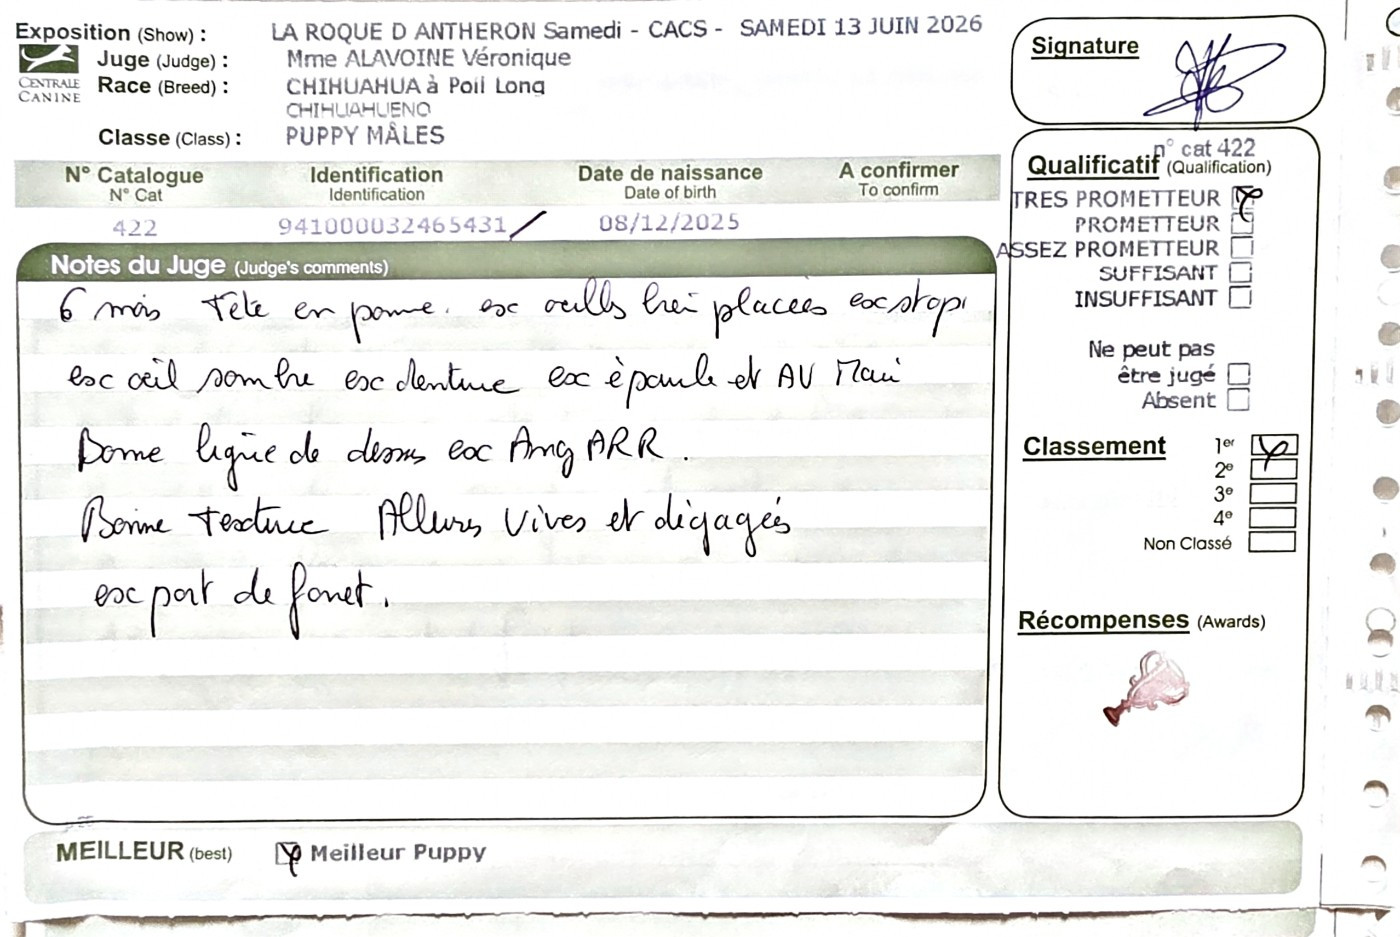 Exposition (Show) : LA ROQUE D ANTHERON Samedi - CACS - SAMEDI 13 JUIN 2026
CENTRALE CANINE
Juge (Judge) : Mme ALAVOINE Véronique
Race (Breed) : CHIHUAHUA à Poil Long
CHIHUAHUENO
Classe (Class) : PUPPY MÂLES
Signature
N° Catalogue Identification Date de naissance A confirmer
N° Cat Identification Date of birth To confirm
422 941000032465431 08/12/2025
Notes du Juge (Judge's comments)
6 mois Tête en pomme. exc oreilles bien placées exc stop
exc œil sombre exc denture exc épaule et AV Main
Bonne ligne de dessus exc Ang ARR.
Bonne Texture Allures Vives et dégagées
exc port de fouet.
n° cat 422
Qualificatif (Qualification)
TRES PROMETTEUR
PROMETTEUR
ASSEZ PROMETTEUR
SUFFISANT
INSUFFISANT
Ne peut pas
être jugé
Absent
Classement 1er
2e
3e
4e
Non Classé
Récompenses (Awards)
MEILLEUR (best) Meilleur Puppy